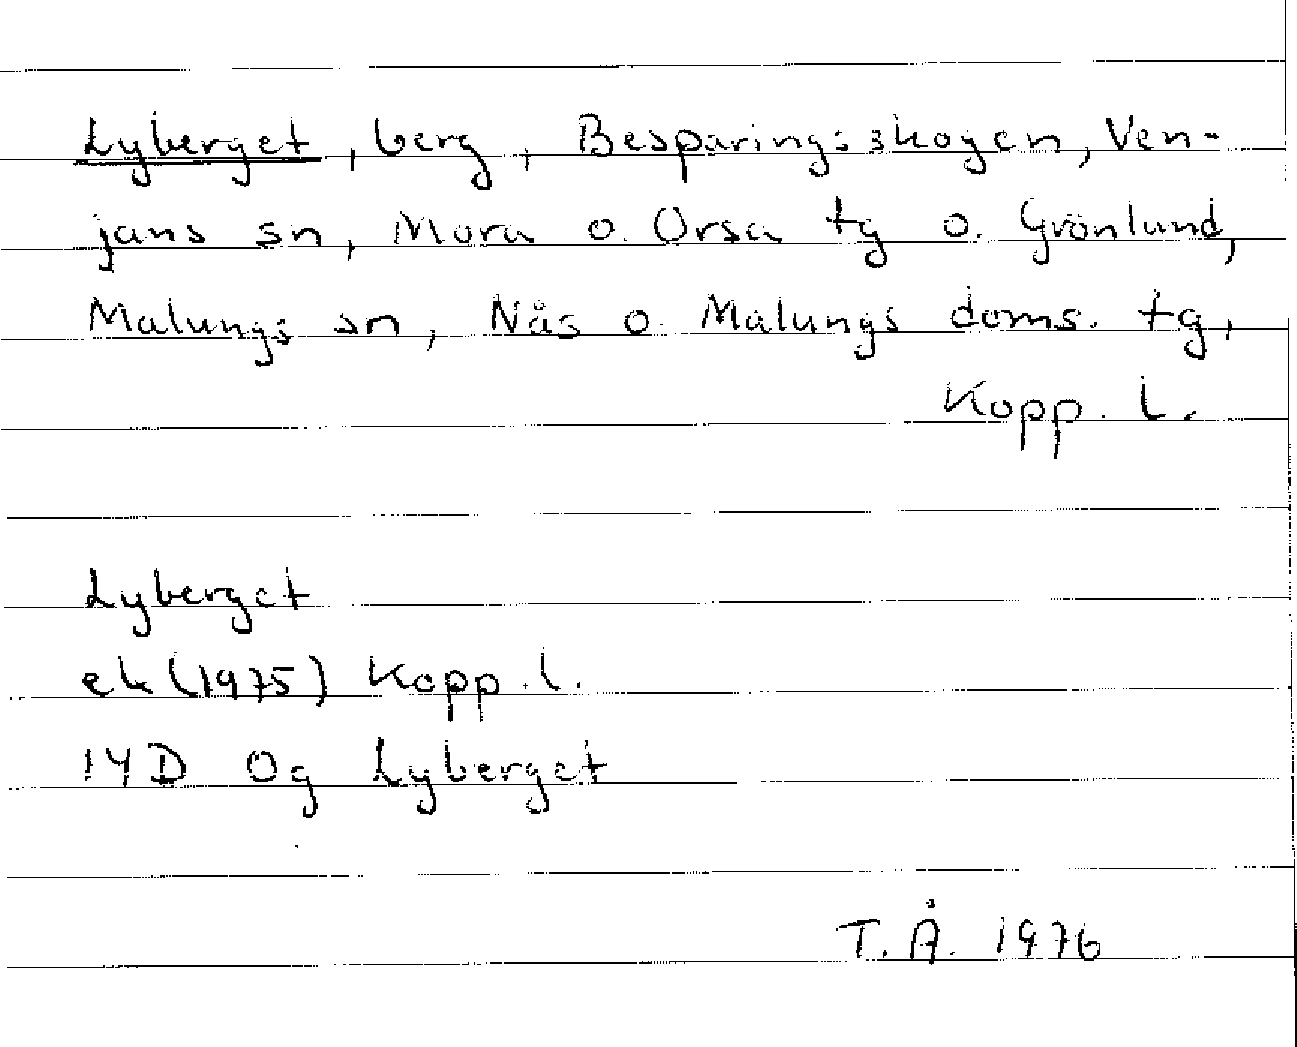 Lyberget, berg, Besparingsskogen, Ven-
jans sn, Mora o. Orsa tg o. Grönlund,
Malungs sn, Nås o. Malungs doms. tg,
Kopp. l.
Lyberget
ek (1975) Kopp. l.
14D 0g Lyberget
T. Å. 1976